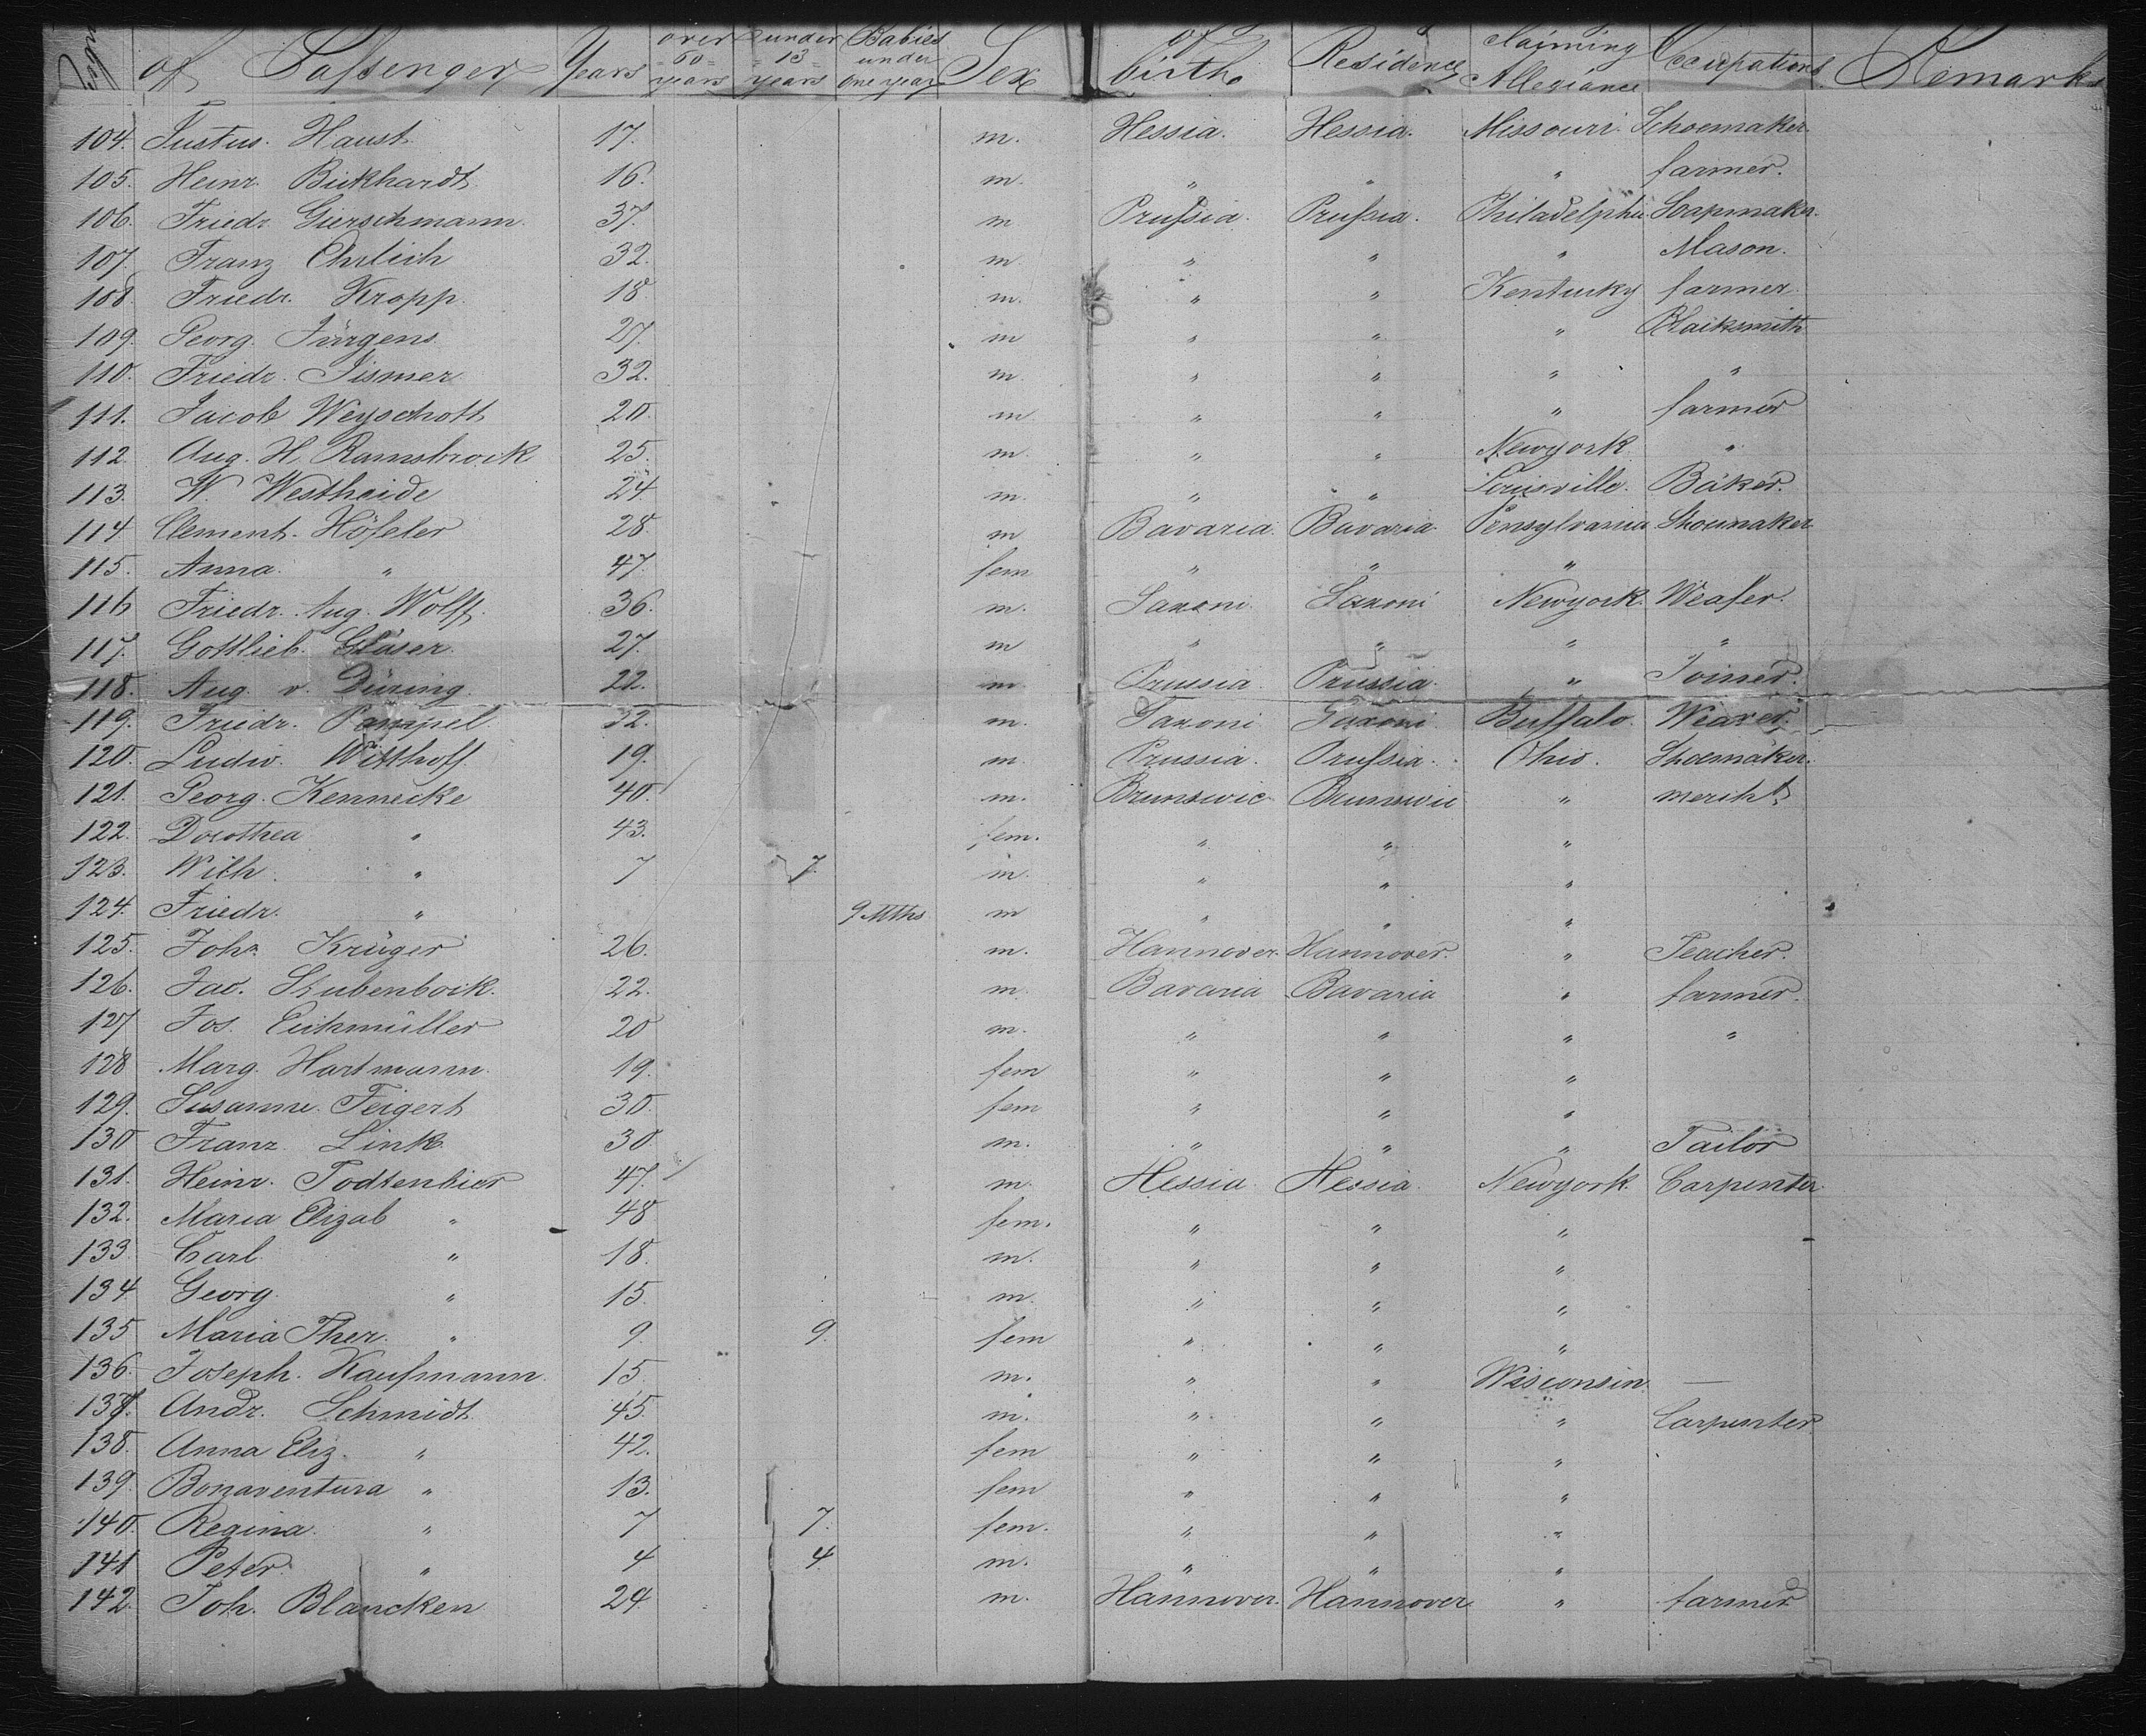 of Passenger Years over 60 years under 13 years Babies under one year Sex of birth Residence claiming Allegiance Occupation Remarks
104. Justus. Haust. 17. m. Hessia. Hessia. Missouri. Schoemaker.
105. Heinr. Bickhardt 16. m. " " " farmer.
106. Friedr. Gierschmann. 37. m Prussia. Prussia. Philadelphia Soapmaker.
107. Franz Ehrlich 32. m. " " " Mason.
108. Friedr. Kropp. 18. m. " " Kentucky farmer.
109. Georg. Jürgens 27. m " " " Blacksmith
110. Friedr. Jismer 32. m. " " " "
111. Jacob Weyschott 20. m " " " farmer
112. Aug. H. Ramsbrock 25. m. " " Newyork "
113. W. Westheide 24 m. " " Louisville. Baker.
114 Clement. Höfeler 28. m Bavaria. Bavaria. Pensylvania Shoemaker
115. Anna. " 47. fem " " "
116 Friedr. Aug. Wolff. 36. m. Saxoni. Saxoni Newyork. Weafer.
117. Gottlieb. Gläser. 27. m " " " "
118. Aug. v. Düring. 22. m. Prussia. Prussia. " Joiner.
119. Friedr. Pampel. 32. m. Saxoni Saxoni Buffalo. Weaver.
120. Ludw. Witthoff. 19. m. Prussia. Prussia. Ohio. Shoemaker.
121. Georg. Kennecke 40. m. Brunswic Brunswic " mercht.
122. Dorothea " 43. fem. " " "
123. Wilh. " 7 7. m. " " "
124. Friedr. " 9 Mths m " " "
125. Joh. Krüger 26. m. Hannover. Hannover. " Teacher.
126. Jac. Stubenbock. 22. m. Bavaria Bavaria " farmer.
127 Jos. Eichmüller 20 m. " " " "
128 Marg. Hartmann. 19. fem " " "
129. Susanne. Feigert 30. fem " " "
130 Franz. Link. 30 m. " " " Tailor
131. Heinr. Todtenbier 47. m. Hessia. Hessia. Newyork. Carpenter.
132. Maria Elizab " 48 fem. " " "
133. Carl. " 18. m. " " "
134 Georg. " 15. m. " " "
135 Maria Ther. " 9. 9. fem " " "
136. Joseph. Kaufmann. 15. m. " " Wisconsin. —
137. Andr. Schmidt. 45. m. " " " Carpenter
138. Anna Eliz. " 42. fem " " "
139. Bonaventura " 13. fem " " "
140. Regina. " 7 7. fem. " " "
141 Peter. " 4 4. m. " " "
142. Joh. Blancken 24. m. Hannover. Hannover. " farmer